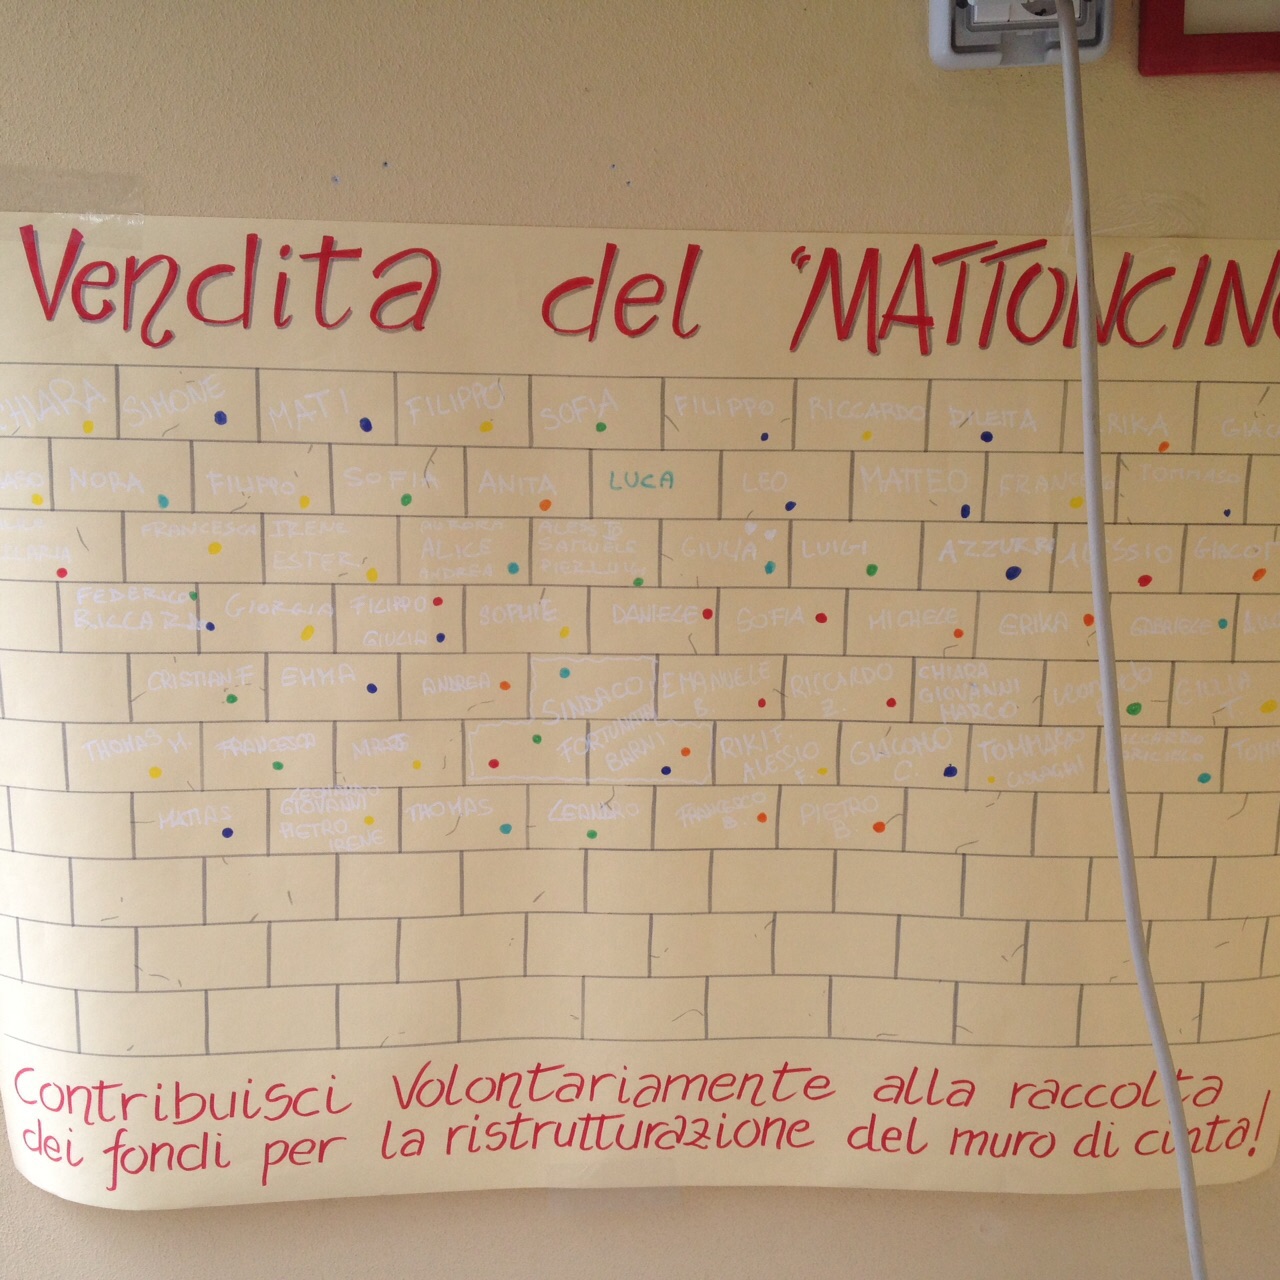 Vendita del "MATTONCIN
CHIARA SIMONE MATI FILIPPO SOFIA FILIPPO RICCARDO DILETTA RIKA GIAC
ASO NORA FILIPPO SOFIA ANITA LUCA LEO MATTEO FRANCESCO TOMMASO
ILARIA FRANCESCA IRENE ESTER AURORA ALICE ANDREA ALESSIO SAMUELE PIERLUIGI GIULIA LUIGI AZZURRA ALESSIO GIACOM
FEDERICO RICCARDO GIORGIA FILIPPO GIULIA SOPHIE DANIELE SOFIA MICHELE ERIKA GABRIELE
CRISTIAN F EMMA ANDREA SINDACO EMANUELE B. RICCARDO Z. CHIARA GIOVANNI MARCO LEONARDO GIULIA T.
THOMAS M. FRANCESCA FORTUNATO BARNI RIKI F. ALESSIO F. GIACOMO C. TOMMASO CISLAGHI TOM
MATIAS LEONARDO GIOVANNI PIETRO IRENE THOMAS LEANDRO FRANCESCO B. PIETRO B.
Contribuisci Volontariamente alla raccolta
dei fondi per la ristrutturazione del muro di cinta!